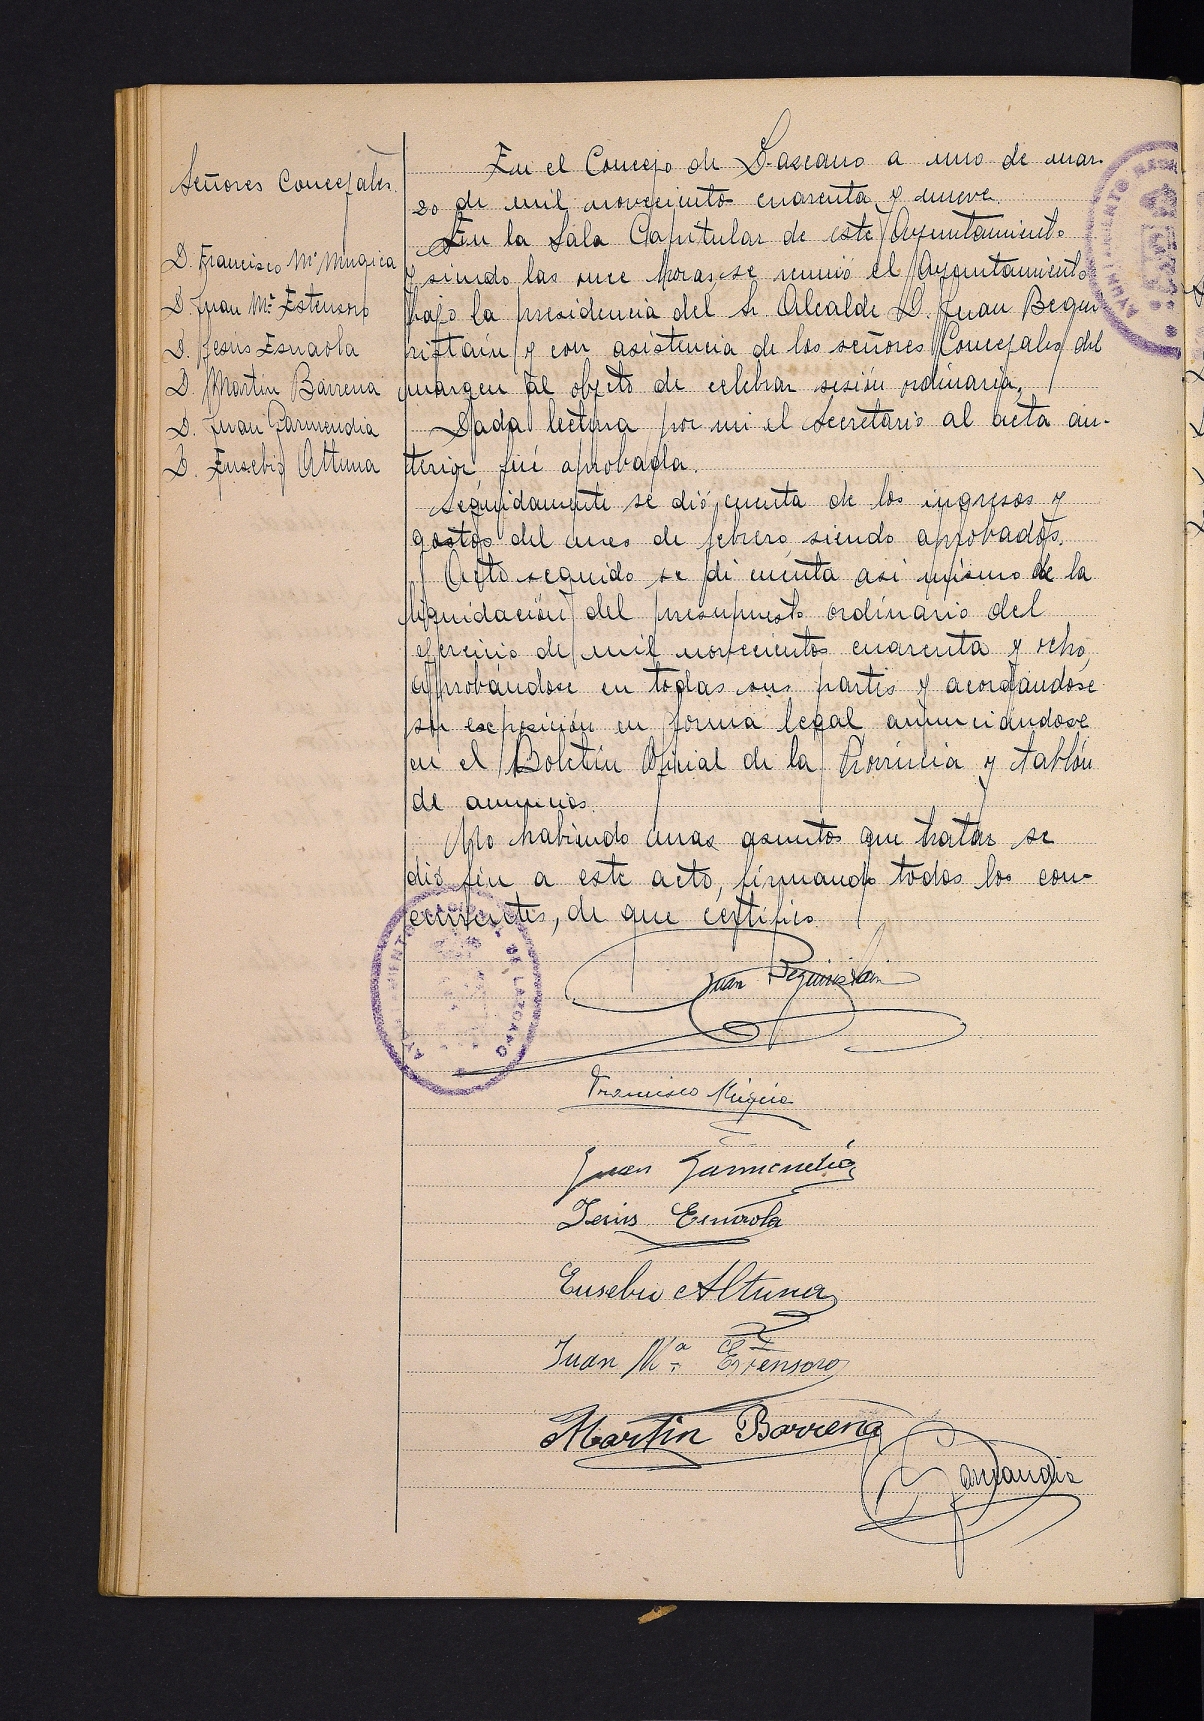 Señores Concejales.
D. Francisco Mª Mugica
D. Juan Mª Estensoro
D. Jesus Esnaola
D. Martin Barrena
D. Juan Garmendia
D. Eusebio Altuna
En el Concejo de Lazcano a uno de mar-
zo de mil novecientos cuarenta y nueve.
En la Sala Capitular de este Ayuntamiento
y siendo las once horas, se reunió el Ayuntamiento
bajo la presidencia del Sr. Alcalde D. Juan Begui-
ristain y con asistencia de los señores Concejales del
margen al objeto de celebrar sesión ordinaria.
Dada lectura por mi el Secretario al acta an-
terior fué aprobada.
Seguidamente se dió cuenta de los ingresos y
gastos del mes de febrero, siendo aprobados.
Acto seguido se di cuenta asi mismo de la
liquidación del presupuesto ordinario del
ejercicio de mil novecientos cuarenta y ocho,
aprobándose en todas sus partes y acordándose
su exposición en forma legal, anunciándose
en el Boletín Oficial de la Provincia y tablón
de anuncios.
No habiendo mas asuntos que tratar se
dió fin a este acto, firmando todos los con-
currentes, de que certifico.
AYUNTAMIENTO DE LAZCANO
Juan Beguiristain
Francisco Mugica
Juan Garmendia
Jesus Esnaola
Eusebio Altuna
Juan Mª Estensoro
Martin Barrena